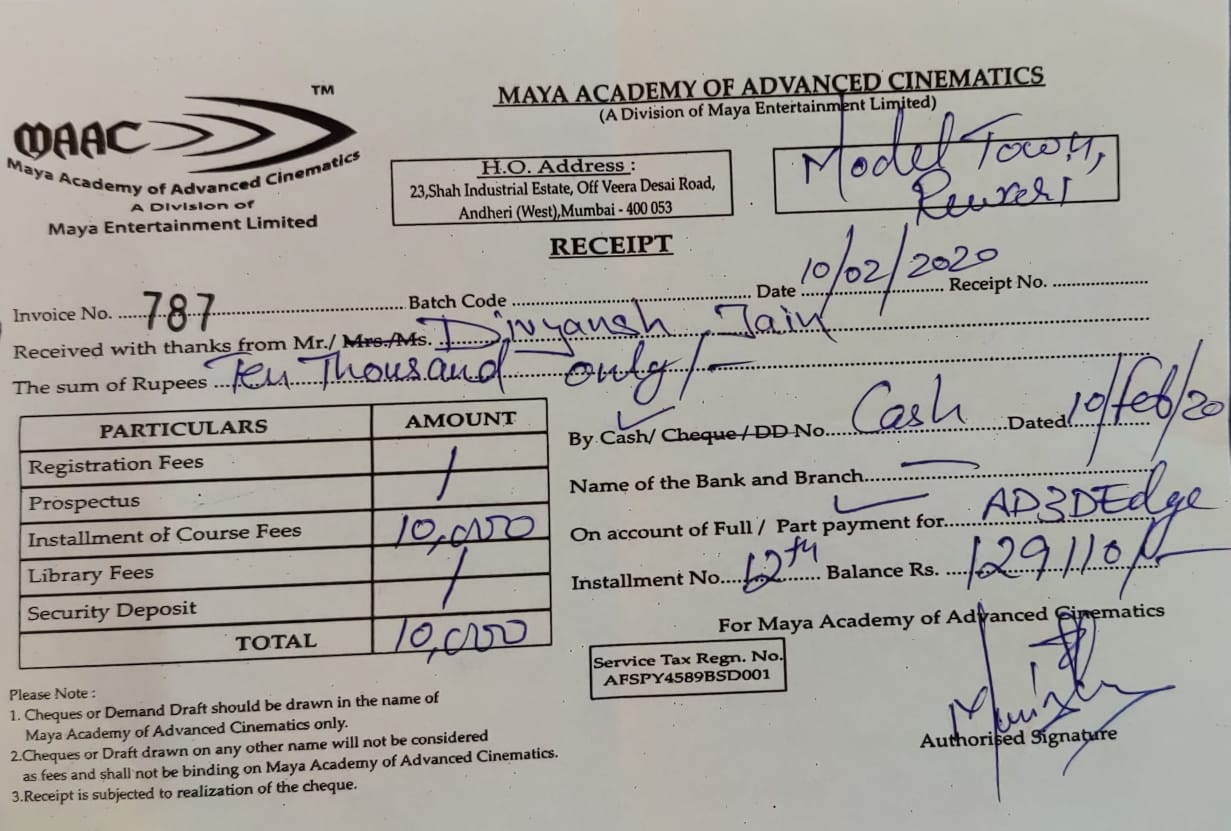 TM
MAAC
Maya Academy of Advanced Cinematics
A Division of
Maya Entertainment Limited
MAYA ACADEMY OF ADVANCED CINEMATICS
(A Division of Maya Entertainment Limited)
H.O. Address :
23,Shah Industrial Estate, Off Veera Desai Road,
Andheri (West),Mumbai - 400 053
Model Town,
Rewari
RECEIPT
Invoice No. 787 Batch Code Date 10/02/2020 Receipt No.
Received with thanks from Mr./ Mrs./Ms. Divyansh Jain
The sum of Rupees Ten Thousand only/-
PARTICULARS AMOUNT
Registration Fees /
Prospectus
Installment of Course Fees 10,000
Library Fees /
Security Deposit
TOTAL 10,000
By Cash/ Cheque / DD No. Cash Dated 10/Feb/20
Name of the Bank and Branch —
On account of Full / Part payment for AD3DEdge
Installment No. 12th Balance Rs. 129110/-
For Maya Academy of Advanced Cinematics
Service Tax Regn. No.
AFSPY4589BSD001
Authorised Signature
Please Note :
1. Cheques or Demand Draft should be drawn in the name of
Maya Academy of Advanced Cinematics only.
2.Cheques or Draft drawn on any other name will not be considered
as fees and shall not be binding on Maya Academy of Advanced Cinematics.
3.Receipt is subjected to realization of the cheque.